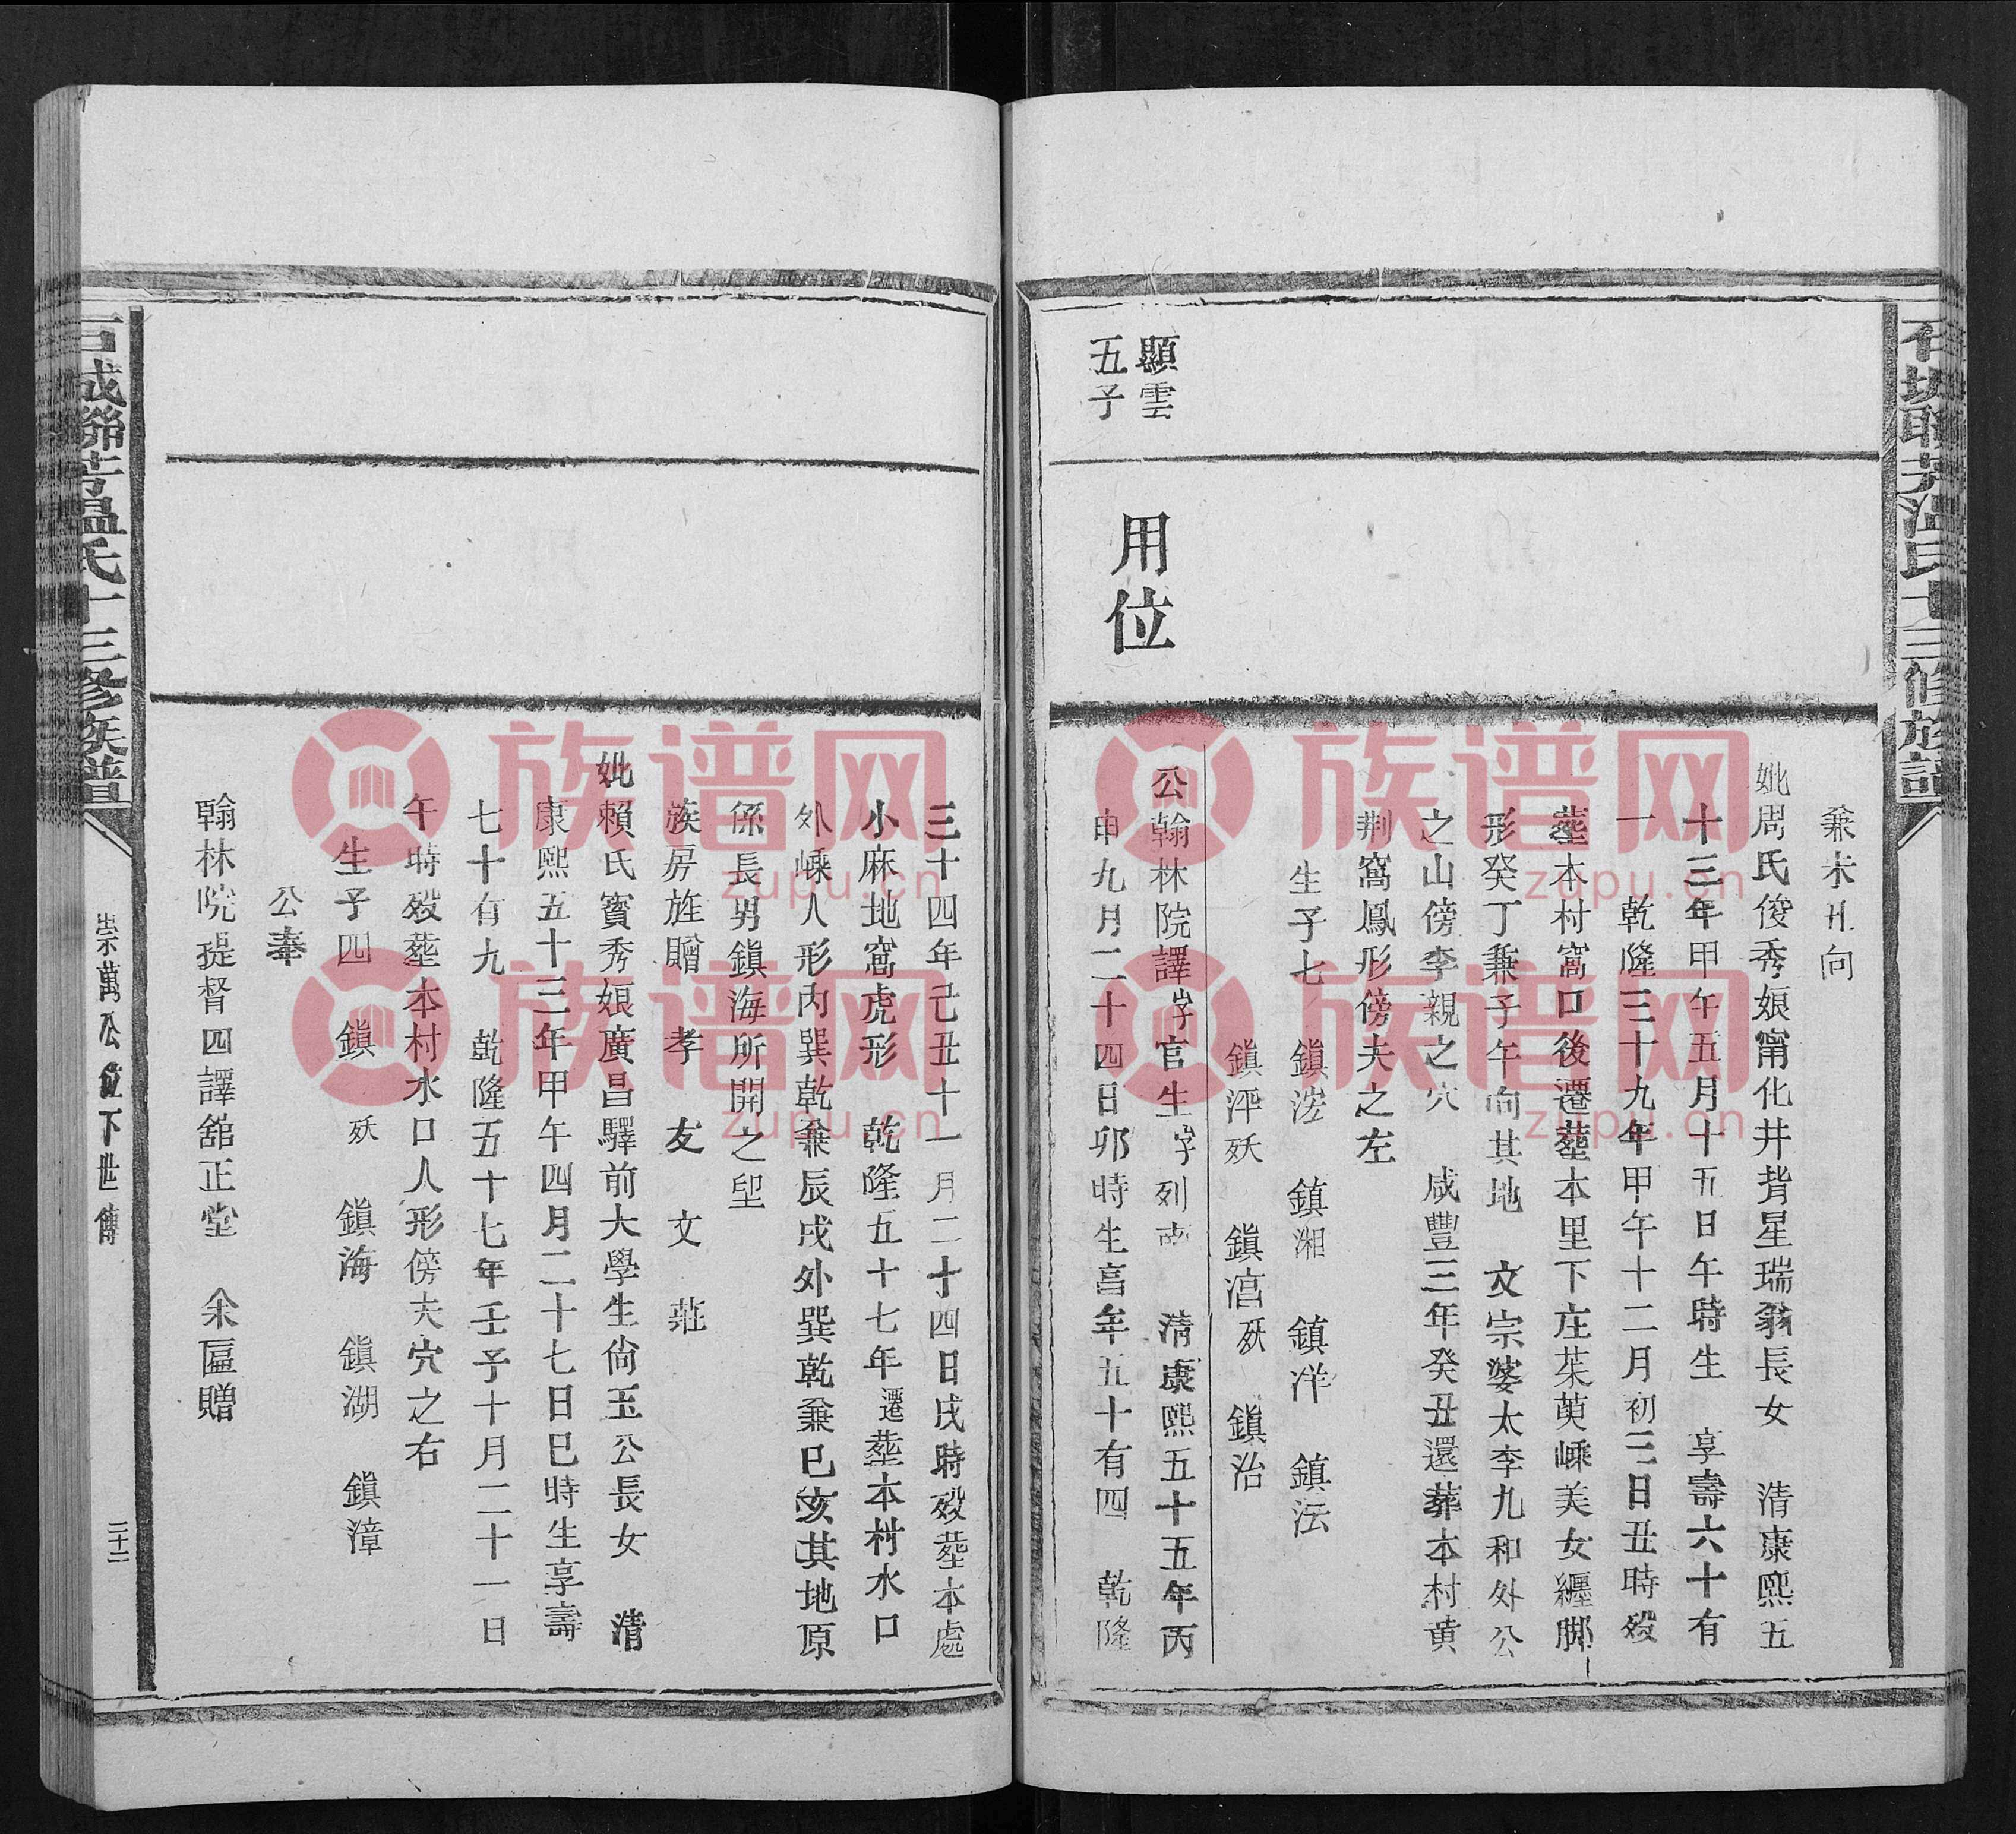 石城聯芳溫氏十三修族譜
顯雲
五子
用位
兼未丑向
妣周氏俊秀娘甯化井背星瑞翁長女 清康熙五
十三年甲午五月十五日午時生 享壽六十有
一 乾隆三十九年甲午十二月初三日丑時歿
塟本村窩口後遷塟本里下庄茱萸嵊美女纒脚
形癸丁兼子午向其地 文宗婆太李九和外公
之山傍李親之穴 咸豐三年癸丑還葬本村黄
荆窩鳳形傍夫之左
生子七 鎮淓 鎮湘 鎮洋 鎮沄
鎮泙殀 鎮涫殀 鎮治
公翰林院譯字官生字列 清康熙五十五年丙
申九月二十四日卯時生享年五十有四 乾隆
三十四年己丑十一月二十四日戌時歿塟本處
小麻地窩虎形 乾隆五十七年遷塟本村水口
外嵊人形内巽乾兼辰戌外巽乾兼巳亥其地原
係長男鎮海所開之卽
族房旌贈 孝 友 文 莊
妣賴氏寳秀娘廣昌驛前大學生尙玉公長女 清
康熙五十三年甲午四月二十七日巳時生享壽
七十有九 乾隆五十七年壬子十月二十一日
午時歿塟本村水口人形傍夫穴之右
生子四 鎮 殀 鎮海 鎮湖 鎮漳
公奉
翰林院提督四譯舘正堂 余匾贈
石城聯芳温氏十三修族譜
崇萬公位下世傳
三十二
族谱网
zupu.cn
族谱网
zupu.cn
族谱网
zupu.cn
族谱网
zupu.cn